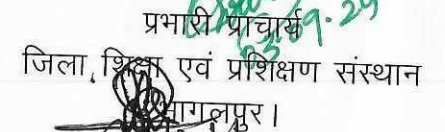 प्रभारी प्राचार्य
जिला, शिक्षा एवं प्रशिक्षण संस्थान
भागलपुर।